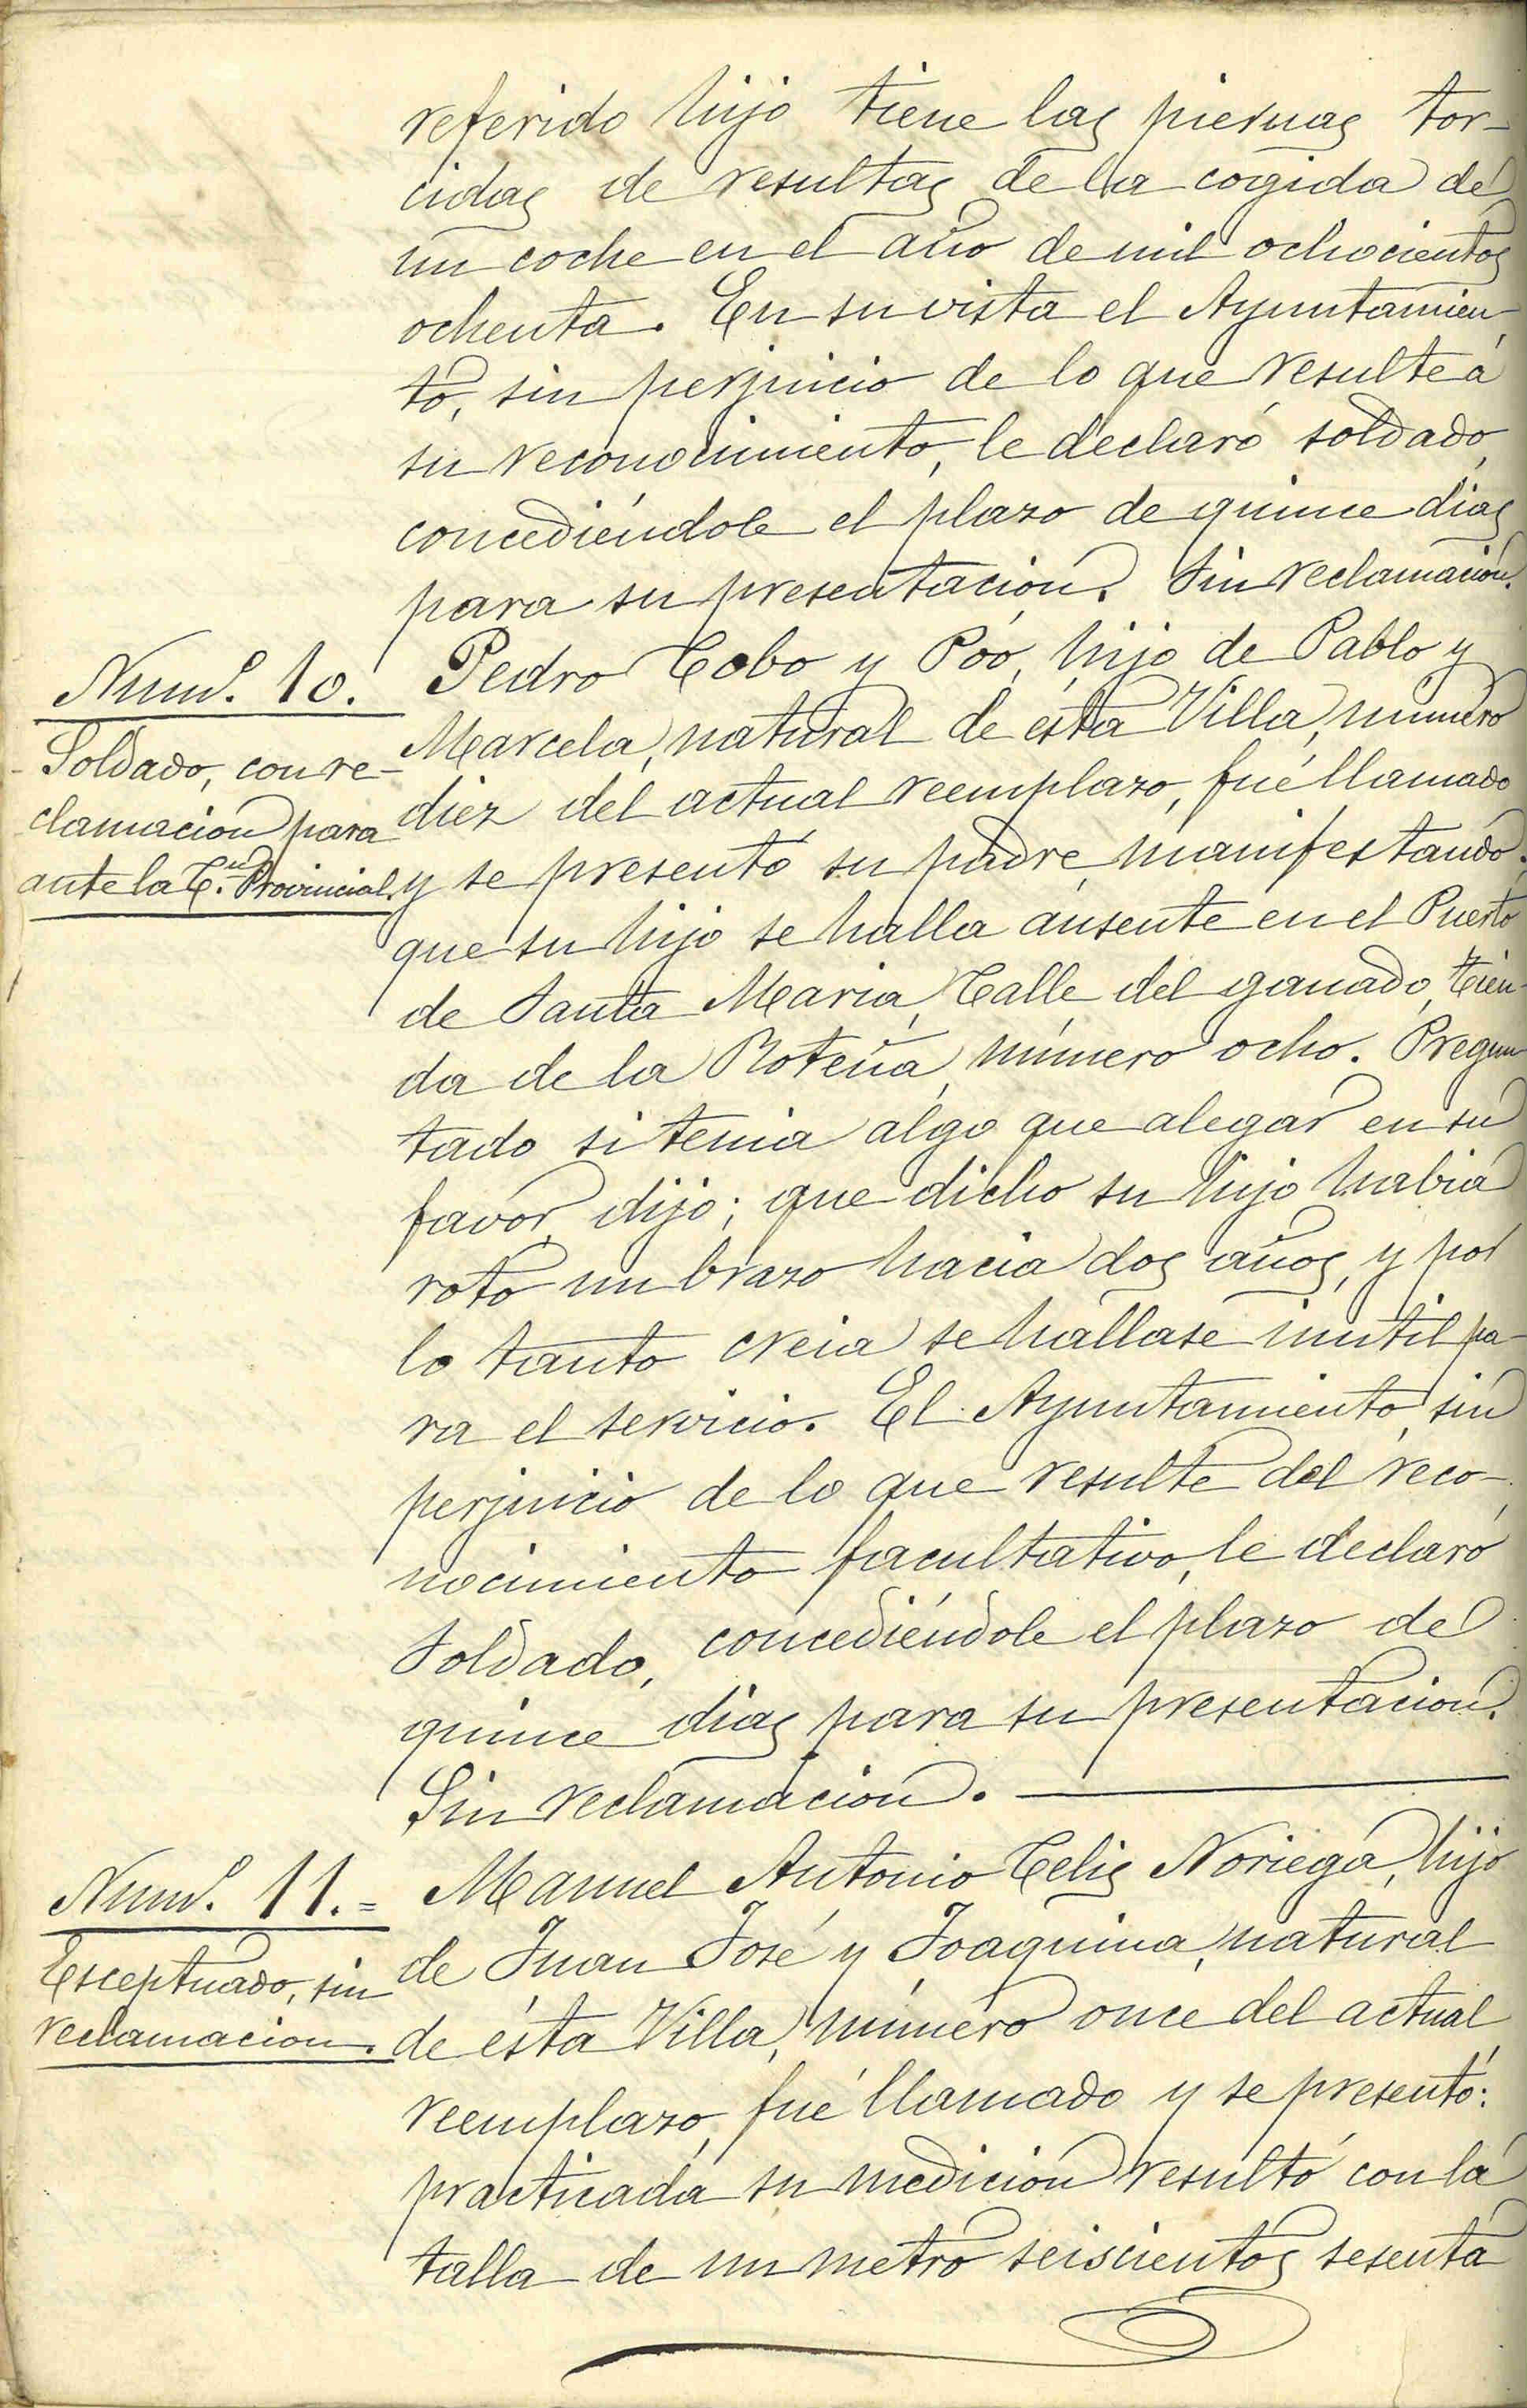 referido hijo tiene las piernas tor-
cidas de resultas de la cogida de
un coche en el año de mil ochocientos
ochenta. En su vista el Ayuntamien
to, sin perjuicio de lo que resulte á
su reconocimiento, le declaró soldado,
concediéndole el plazo de quince dias
para su presentacion. Sin reclamación.
Num.º 10.
Soldado, con re-
clamacion para
ante la C.on Provincial.
Pedro Cobo y Póo, hijo de Pablo y
Marcela, natural de ésta Villa, número
diez del actual reemplazo, fué llamado
y se presentó su padre, manifestando;
que su hijo se halla ausente en el Puerto
de Santa Maria, Calle del ganado, tien-
da de la Roteña, número ocho. Pregun
tado si tenia algo que alegar en su
favor, dijo; que dicho su hijo habia
roto un brazo hacia dos años, y por
lo tanto creia se hallase inutil pa-
ra el servicio. El Ayuntamiento, sin
perjuicio de lo que resulte del reco-
nocimiento facultativo, le declaró
Soldado, concediéndole el plazo de
quince dias para su presentacion.
Sin reclamacion.
Num.º 11.=
Esceptuado, sin
reclamacion.
Manuel Antonio Celis Noriega, hijo
de Juan José y Joaquina, natural
de ésta Villa, número once del actual
reemplazo, fué llamado y se presentó:
practicada su medicion resultó con la
talla de un metro seiscientos sesenta